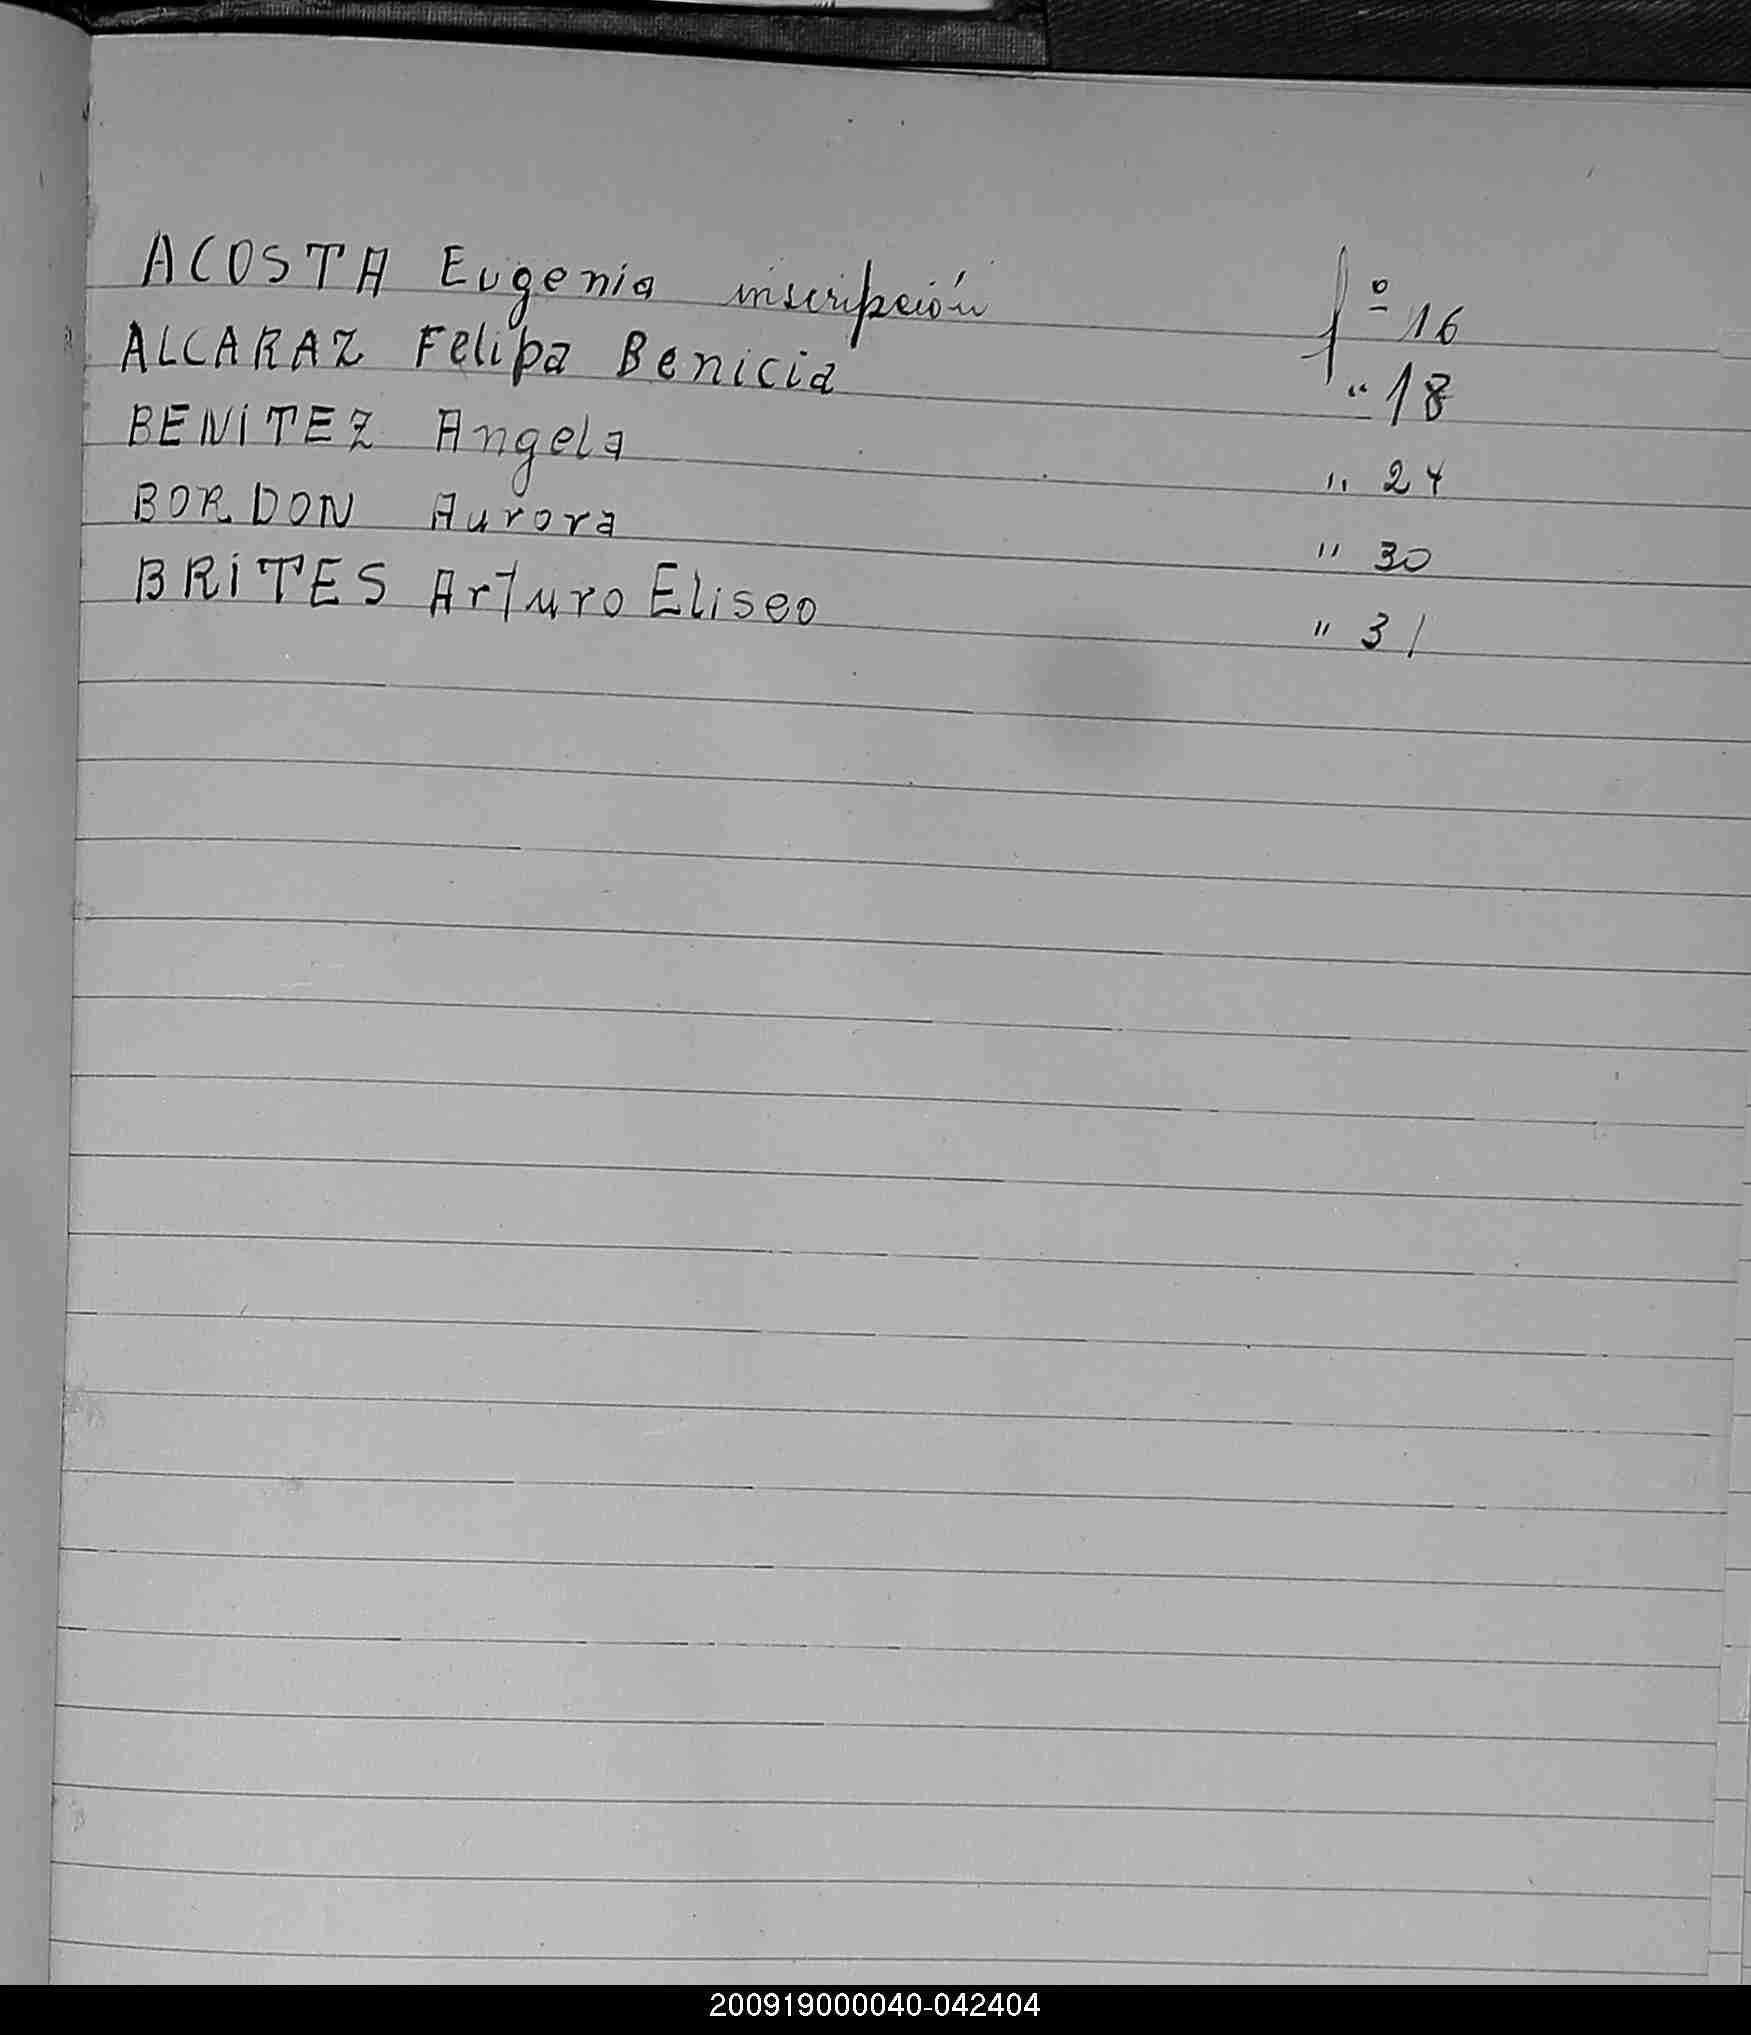 ACOSTA Eugenia inscripción fº 16
ALCARAZ Felipa Benicia " 18
BENITEZ Angela " 24
BORDON Aurora " 30
BRITES Arturo Eliseo " 31
200919000040-042404